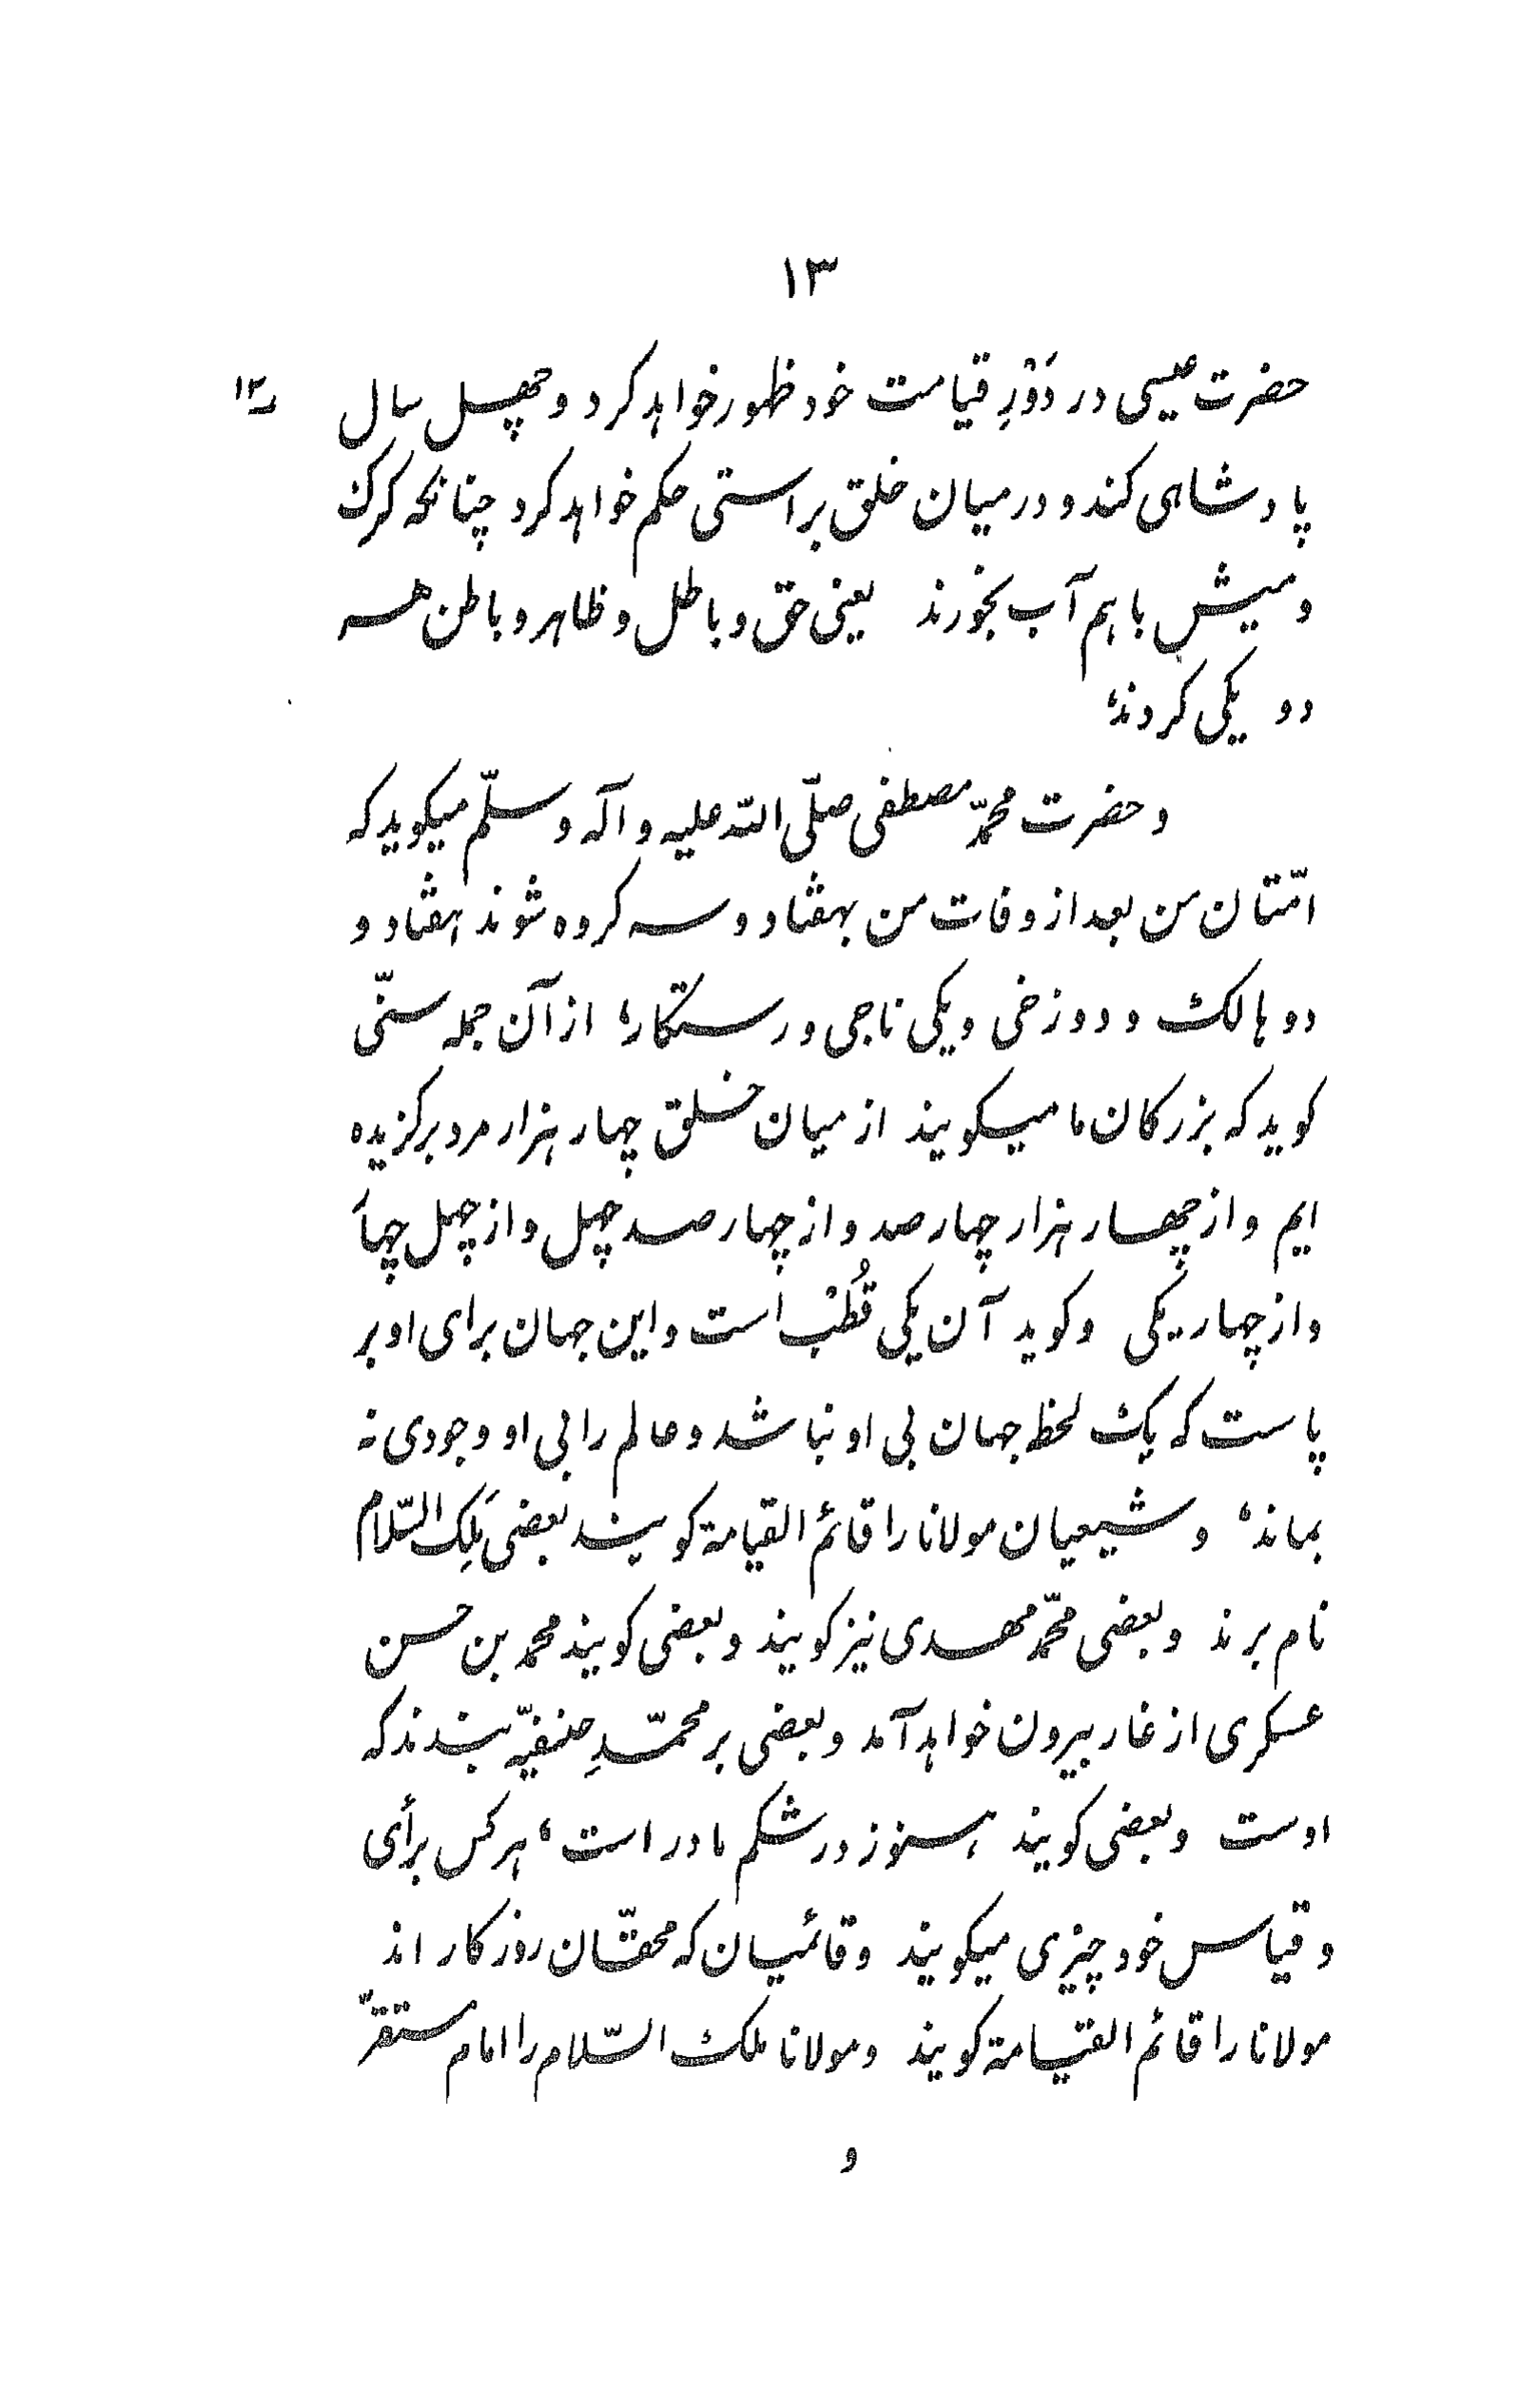 ۱۳
حضرت عیسی در دَوْرِ قیامت خود ظهور خواهد کرد و چهل سال
پادشاهی کند و در میان خلق براستی حکم خواهد کرد چنانکه کرک
و میش باهم آب بخورند یعنی حق و باطل و ظاهر و باطن همه
دو یکی کردند؛
و حضرت محمّد مصطفی صلّی اللّه علیه و آله و سلّم میکوید که
امّتان من بعد از وفات من بهفتاد و سه کروه شوند هفتاد و
دو هالک و دوزخی و یکی ناجی و رستکار؛ از آن جمله سنّی
کوید که بزرکان ما میکویند از میان خلق چهار هزار مرد برکزیده
ایم و از چهار هزار چهار صد و از چهار صد چهل و از چهل چهار
و از چهار یکی و کوید آن یکی قُطْب است و این جهان برای او بر
پاست که یک لحظه جهان بی او نباشد و عالم را بی او وجودی نه
بماند؛ و شیعیان مولانا را قائم القیامة کویند بعضی مَلِک السّلام
نام برند و بعضی محمّد مهدی نیز کویند و بعضی کویند محمد بن حسن
عسکری از غار بیرون خواهد آمد و بعضی بر محمّدِ حنفیّه بندند که
اوست و بعضی کویند هنوز در شکم مادر است؛ هر کس برأی
و قیاس خود چیزی میکویند و قائمیان که محقّان روزکار اند
مولانا را قائم القیامة کویند و مولانا ملک السّلام را امام مستقرّ
و